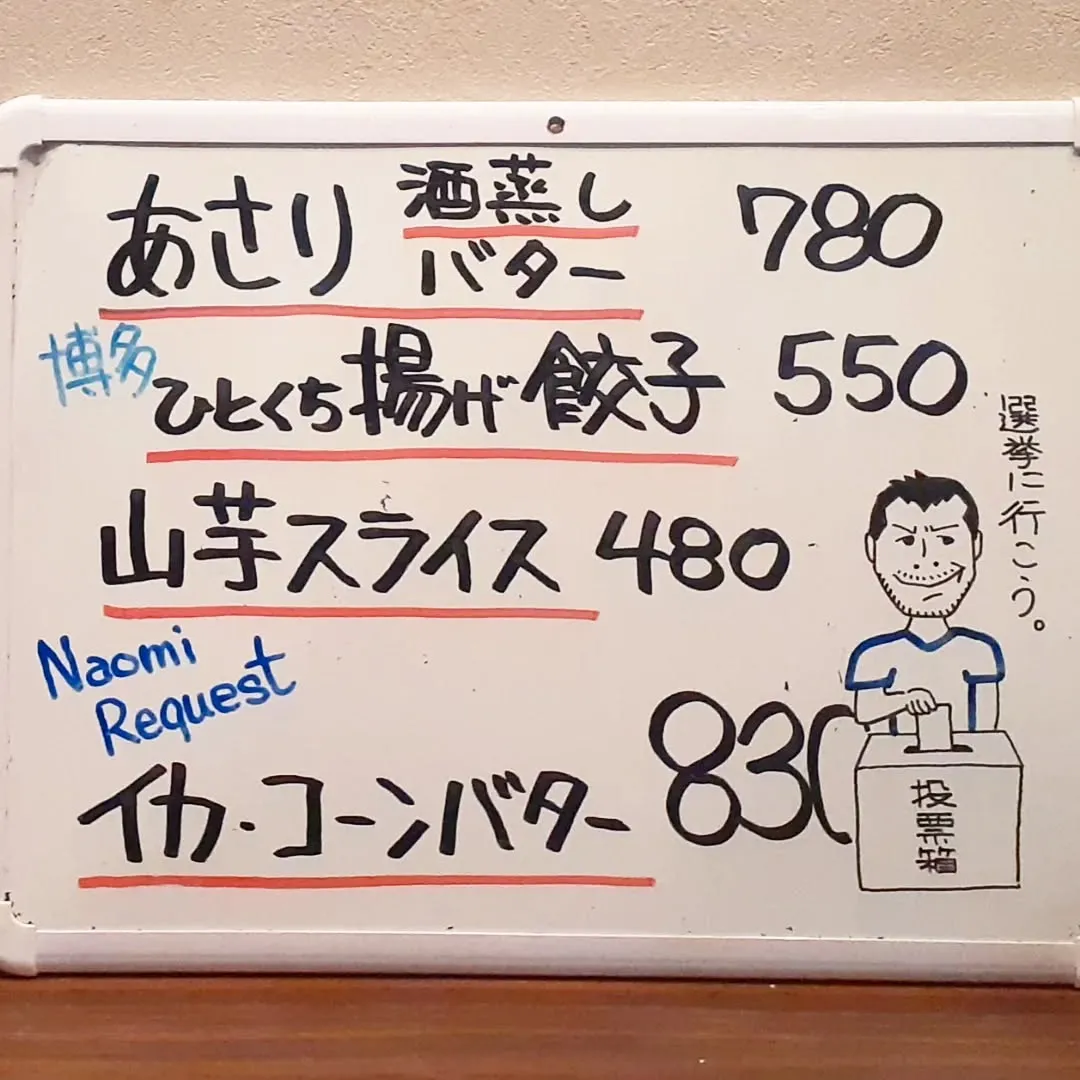 あさり 酒蒸し 780
バター
博多
ひとくち揚げ餃子 550
山芋スライス 480
Naomi
Request
イカ・コーンバター 830
選挙に行こう。
投票箱